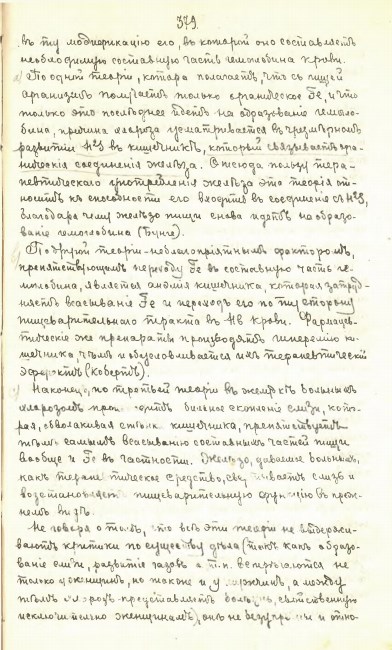 379.
въ ту модификацію его, въ которой оно составляетъ
необходимую составную часть гемоглобина крови.
По одной теоріи, которая полагаетъ, что съ пищей
организмъ получаетъ только органическое Fe, и что
только это последнее идетъ на образованіе гемогло-
бина, причина хлороза усматривается въ чрезмѣрномъ
развитіи H2S въ кишечникѣ, который связываетъ ор-
ническія соединенія желѣза. Отсюда пользу тера-
певтическаго употребленія желѣза эта теорія от-
носитъ къ способности его входить въ соединеніе съ H2S,
благодаря чему желѣзо пищи снова идетъ на образо-
ваніе гемоглобина (Бунге).
По другой теоріи неблагопріятнымъ факторомъ,
препятствующимъ переходу Fe въ составную часть ге-
моглобина, является анэмія кишечника, которая затруд-
няетъ всасываніе Fe и переходъ его по ту сторону
пищеварительнаго тракта въ Hb крови. Фармацев-
тическіе же препараты производятъ гиперэмію ки-
шечника, чѣмъ и обусловливается ихъ терапевтическій
эффектъ (Кобертъ).
Наконецъ, по третьей теоріи въ желудкѣ больныхъ
хлорозомъ обильное скопленіе слизи, кото-
рая, обволакивая кишечника, препятствуетъ
тѣмъ самымъ всасыванію составныхъ частей пищи
вообще и Fe въ частности. Желѣзо, даваемое больнымъ,
какъ средство, слизь и
пищеварительную въ преж-
немъ видѣ.
Не говоря о томъ, что всѣ эти теоріи не выдержи-
ваютъ критики по существу дѣла (такъ какъ образо-
ваніе слизи, развитіе газовъ и т.п. встрѣчаются не
только у женщинъ, но также и у мужчинъ, а между
тѣмъ хлорозъ представляетъ болѣзнь, свойственную
исключительно женщинамъ), онѣ не и отно-